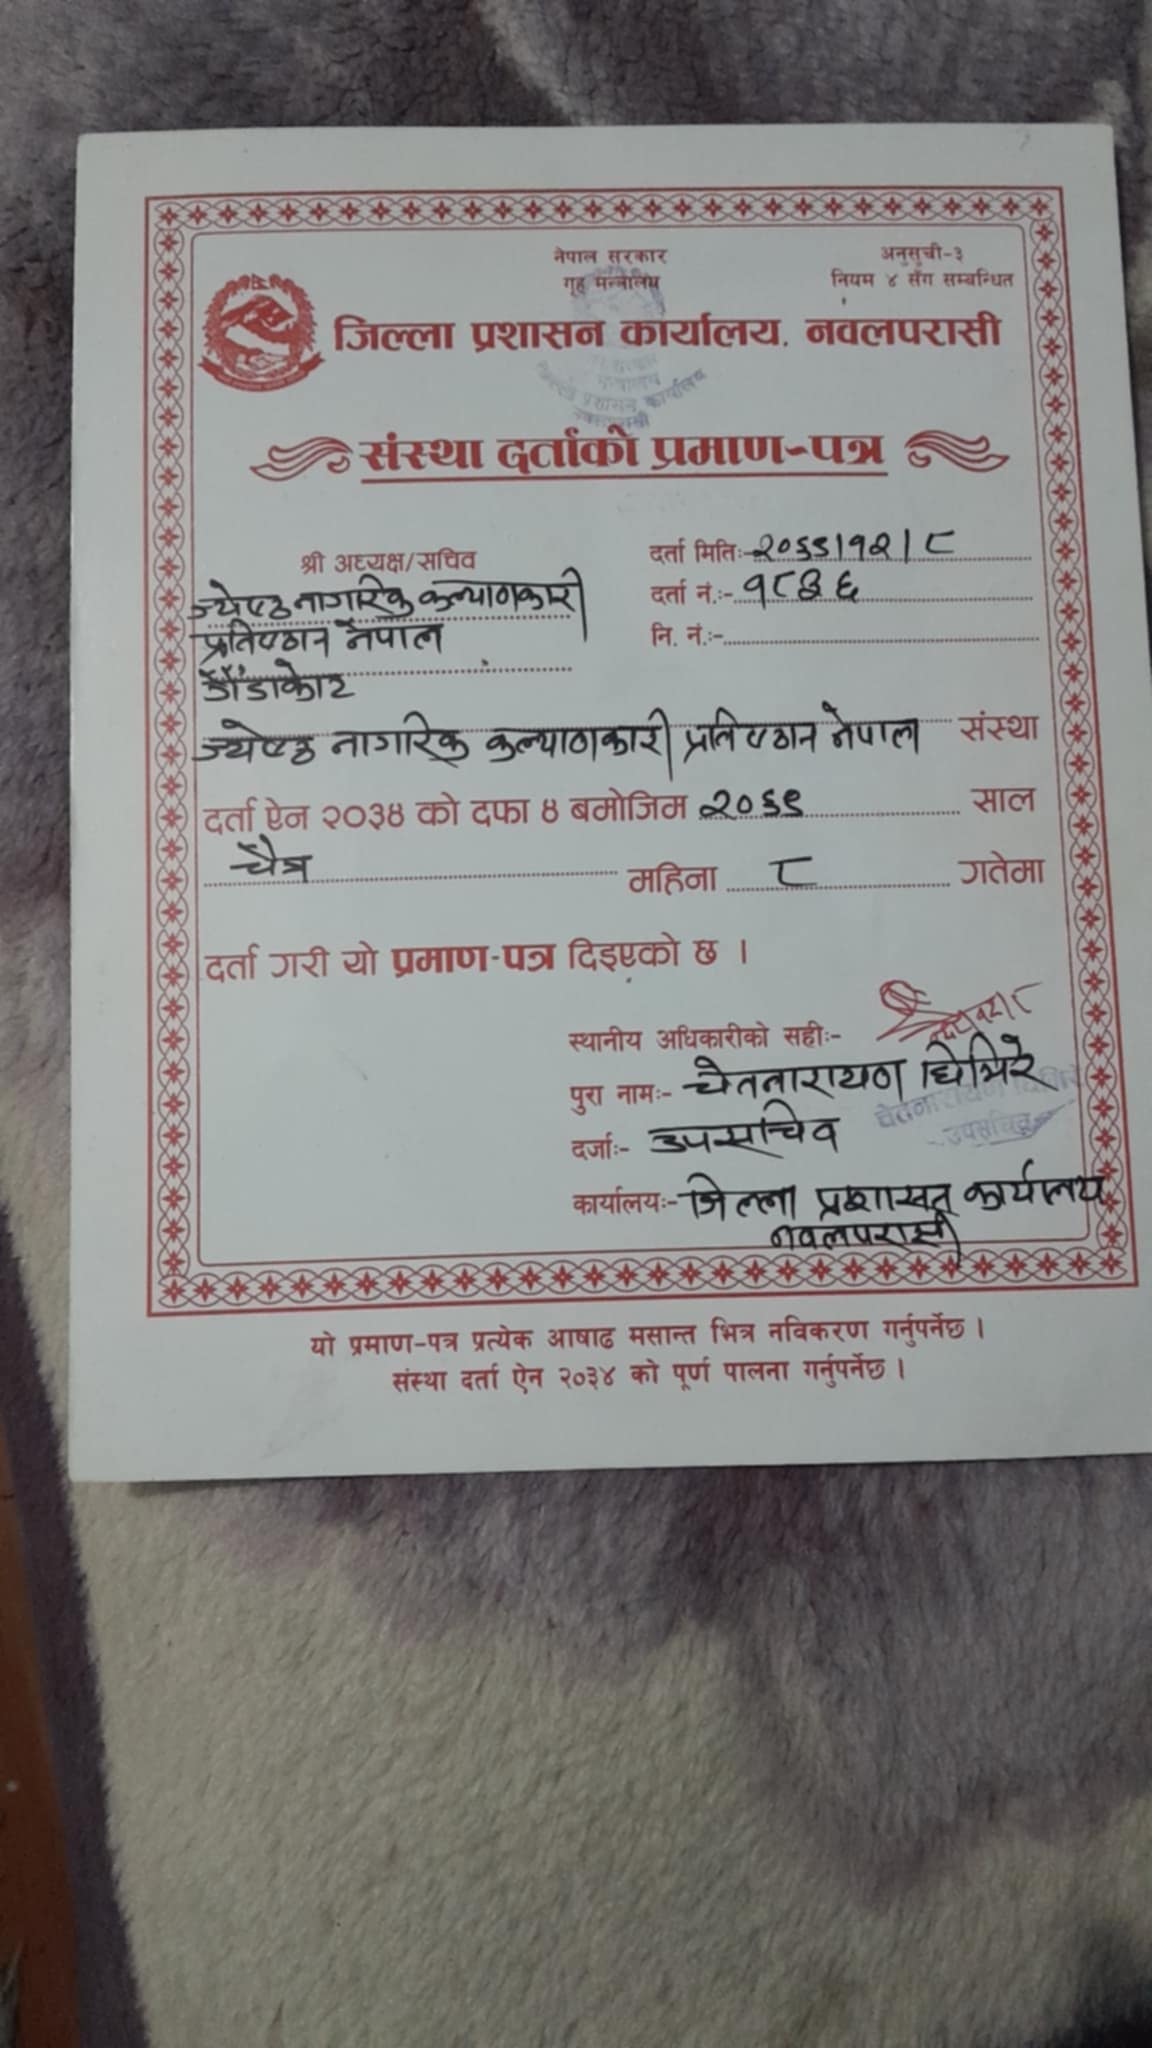 नेपाल सरकार
गृह मन्त्रालय
अनुसुची-३
नियम ४ सँग सम्बन्धित
जिल्ला प्रशासन कार्यालय, नवलपरासी
जिल्ला प्रशासन कार्यालय
नवलपरासी
संस्था दर्ताको प्रमाण-पत्र
श्री अध्यक्ष/सचिव
ज्येष्ठ नागरिक कल्याणकारी
प्रतिष्ठान नेपाल
डाँडाकोट
दर्ता मितिः-२०६९।१२।८
दर्ता नं.ः-१८३६
नि. नं.ः-
ज्येष्ठ नागरिक कल्याणकारी प्रतिष्ठान नेपाल संस्था
दर्ता ऐन २०३४ को दफा ४ बमोजिम २०६९ साल
चैत्र महिना ८ गतेमा
दर्ता गरी यो प्रमाण-पत्र दिइएको छ ।
स्थानीय अधिकारीको सहीः-
पुरा नामः- चेतनारायण घिमिरे
चेतनारायण घिमिरे
दर्जाः- उपसचिव
उपसचिव
कार्यालयः- जिल्ला प्रशासन कार्यालय
नवलपरासी
यो प्रमाण-पत्र प्रत्येक आषाढ मसान्त भित्र नविकरण गर्नुपर्नेछ ।
संस्था दर्ता ऐन २०३४ को पूर्ण पालना गर्नुपर्नेछ ।